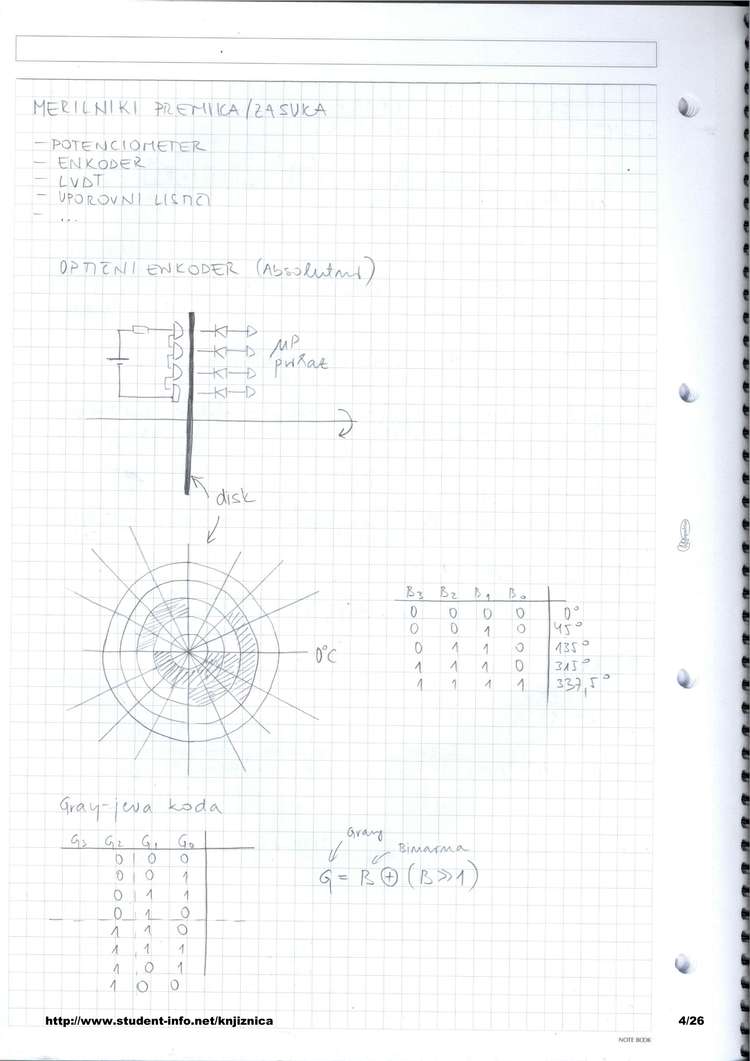 MERILNIKI PREMIKA/ZASUKA
- POTENCIOMETER
- ENKODER
- LVDT
- UPOROVNI LISTIČI
- ...
OPTIČNI ENKODER (Absolutni)
μP
prikaz
disk
0°C
B3 B2 B1 B0
0 0 0 0 0°
0 0 1 0 45°
0 1 1 0 135°
1 1 1 0 315°
1 1 1 1 337,5°
Gray-jeva koda
G3 G2 G1 G0
0 0 0
0 0 1
0 1 1
0 1 0
1 1 0
1 1 1
1 0 1
1 0 0
Gray
Binarna
G = B ⊕ (B≫1)
http://www.student-info.net/knjiznica
4/26
NOTE BOOK